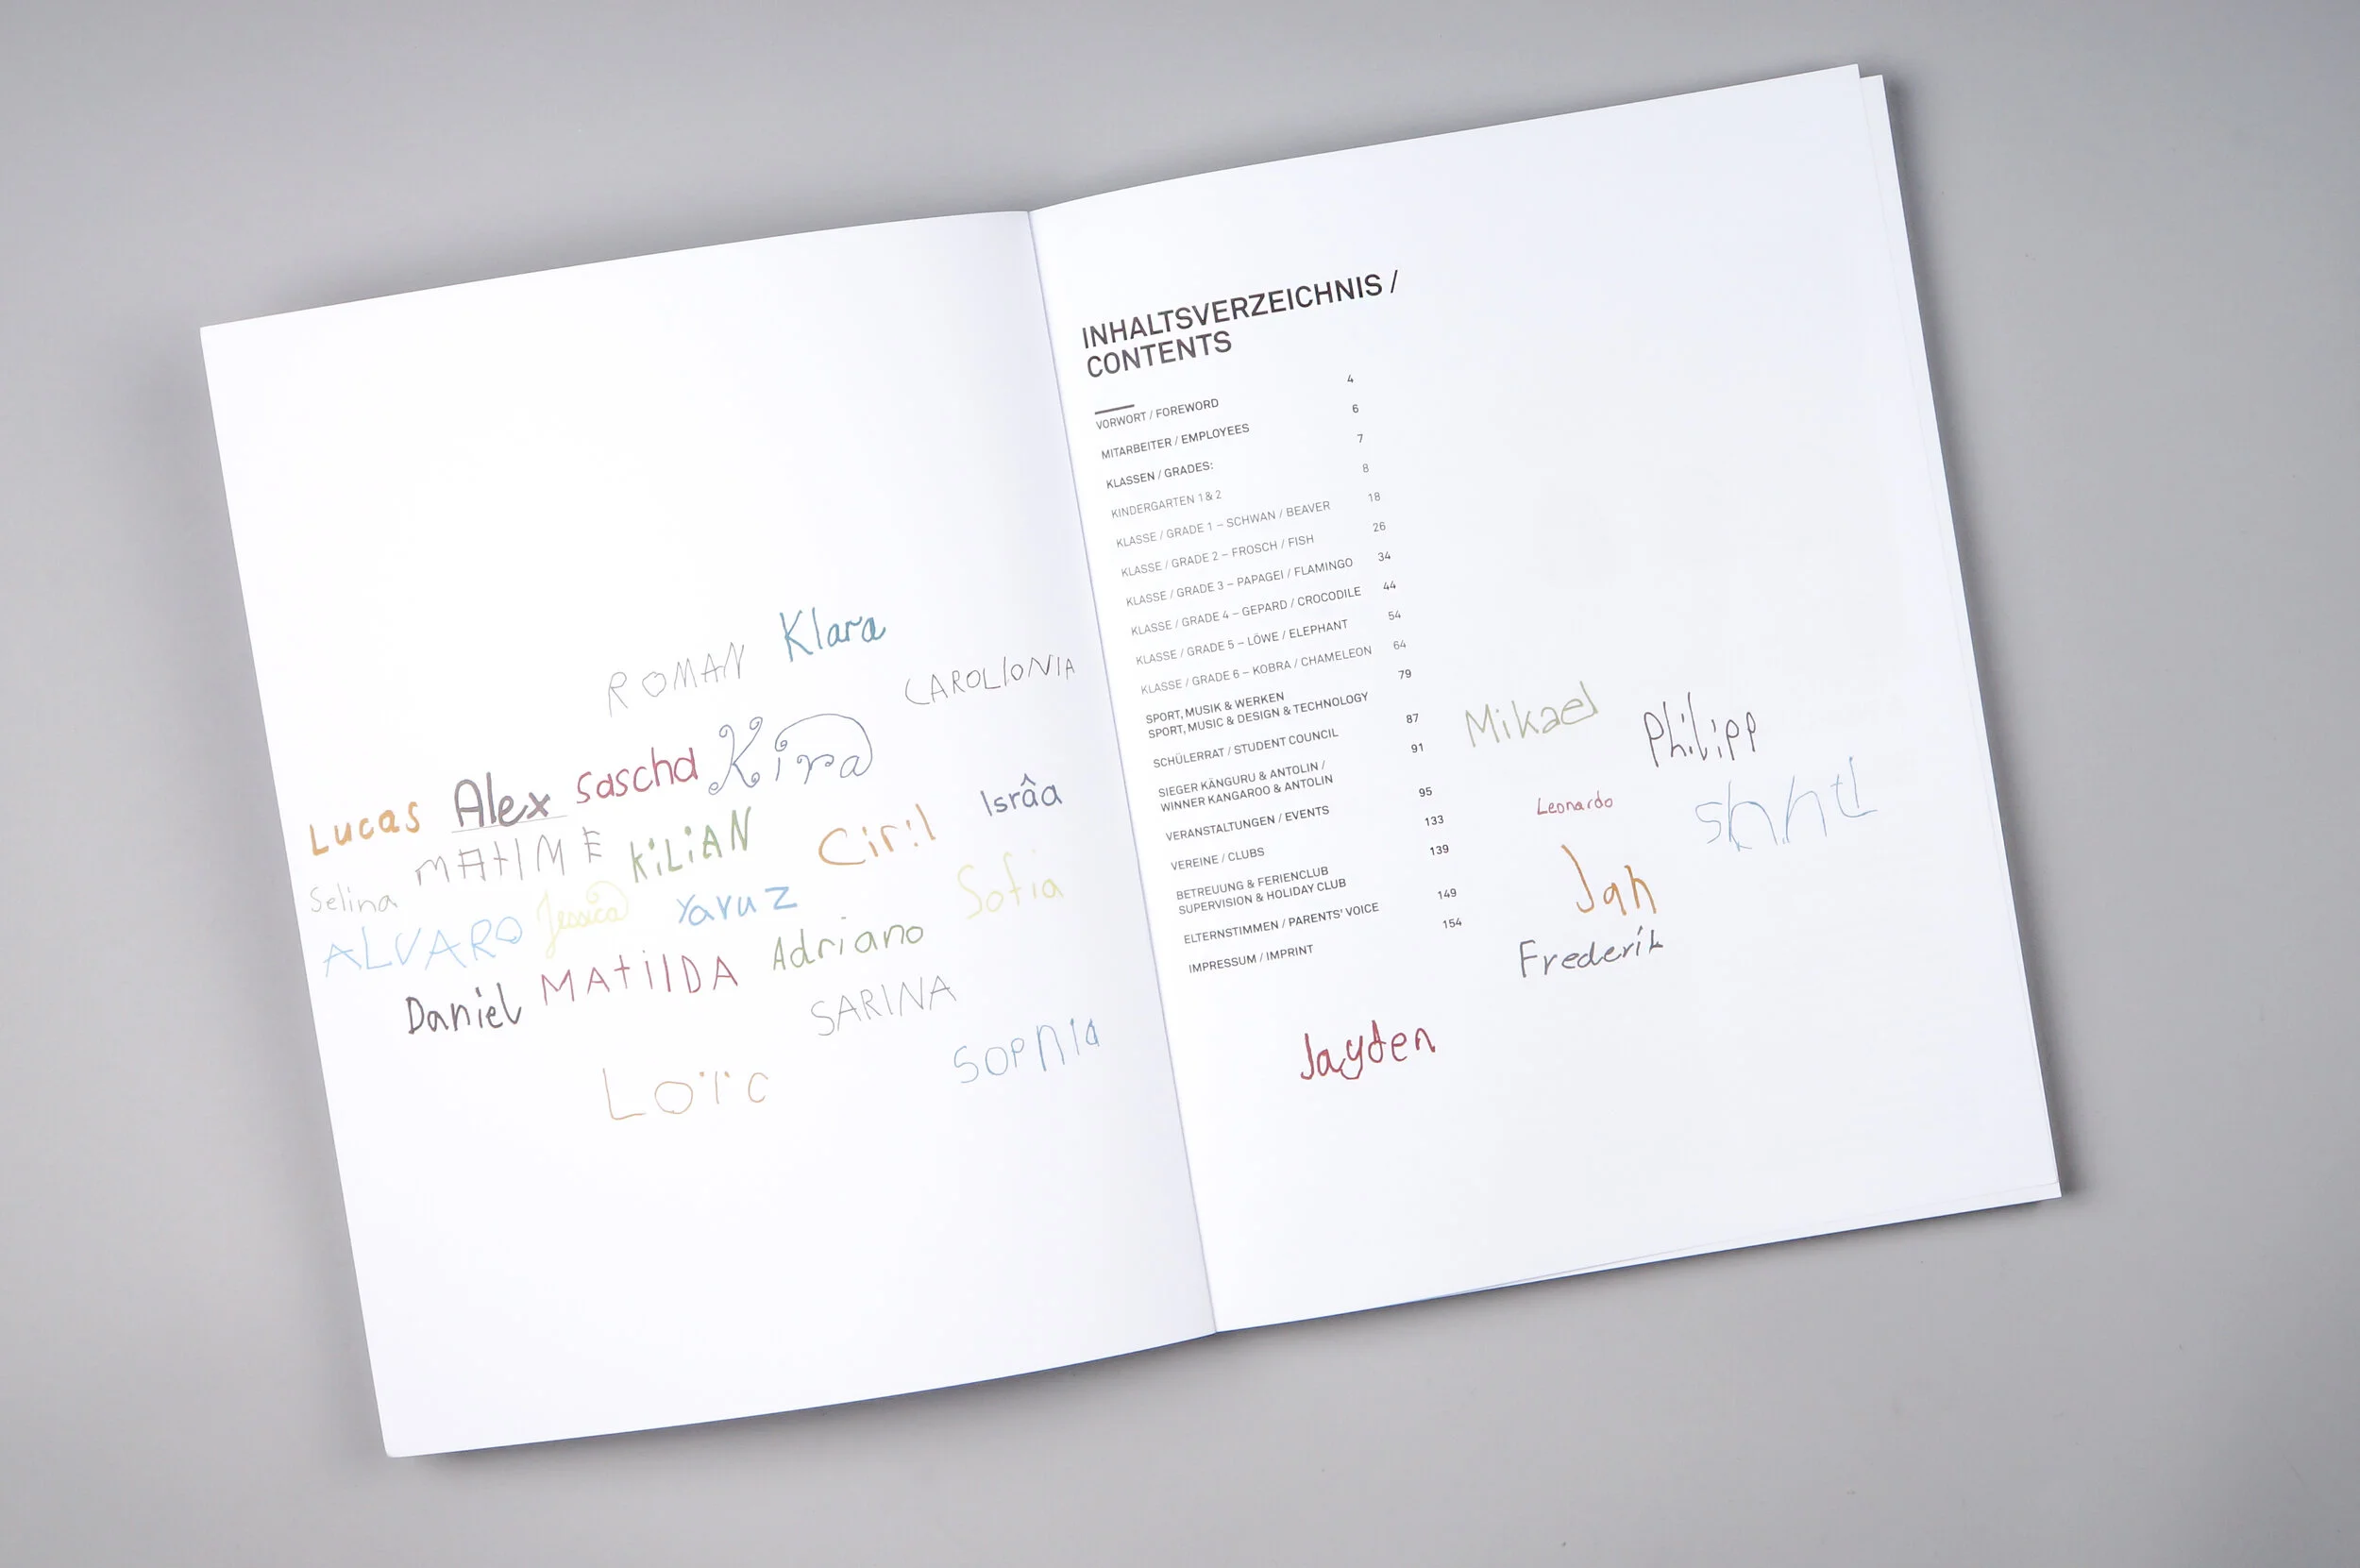 ROMAN Klara
CAROLIONIA
Lucas Alex sascha Kira
MAHME KiLiAN Ciril Isrâa
Selina
ALVARO Jessica Yavuz Sofia
Daniel MAtilDA Adriano
SARINA
Loïc SOPhia
INHALTSVERZEICHNIS /
CONTENTS
4
VORWORT / FOREWORD 6
MITARBEITER / EMPLOYEES 7
KLASSEN / GRADES: 8
KINDERGARTEN 1 & 2 18
KLASSE / GRADE 1 – SCHWAN / BEAVER 26
KLASSE / GRADE 2 – FROSCH / FISH 34
KLASSE / GRADE 3 – PAPAGEI / FLAMINGO 44
KLASSE / GRADE 4 – GEPARD / CROCODILE 54
KLASSE / GRADE 5 – LÖWE / ELEPHANT 64
KLASSE / GRADE 6 – KOBRA / CHAMELEON 79
SPORT, MUSIK & WERKEN
SPORT, MUSIC & DESIGN & TECHNOLOGY 87
SCHÜLERRAT / STUDENT COUNCIL 91
SIEGER KÄNGURU & ANTOLIN /
WINNER KANGAROO & ANTOLIN 95
VERANSTALTUNGEN / EVENTS 133
VEREINE / CLUBS 139
BETREUUNG & FERIENCLUB
SUPERVISION & HOLIDAY CLUB 149
ELTERNSTIMMEN / PARENTS' VOICE 154
IMPRESSUM / IMPRINT
Mikael Philipp
Leonardo
Jan
Frederik
Jayden